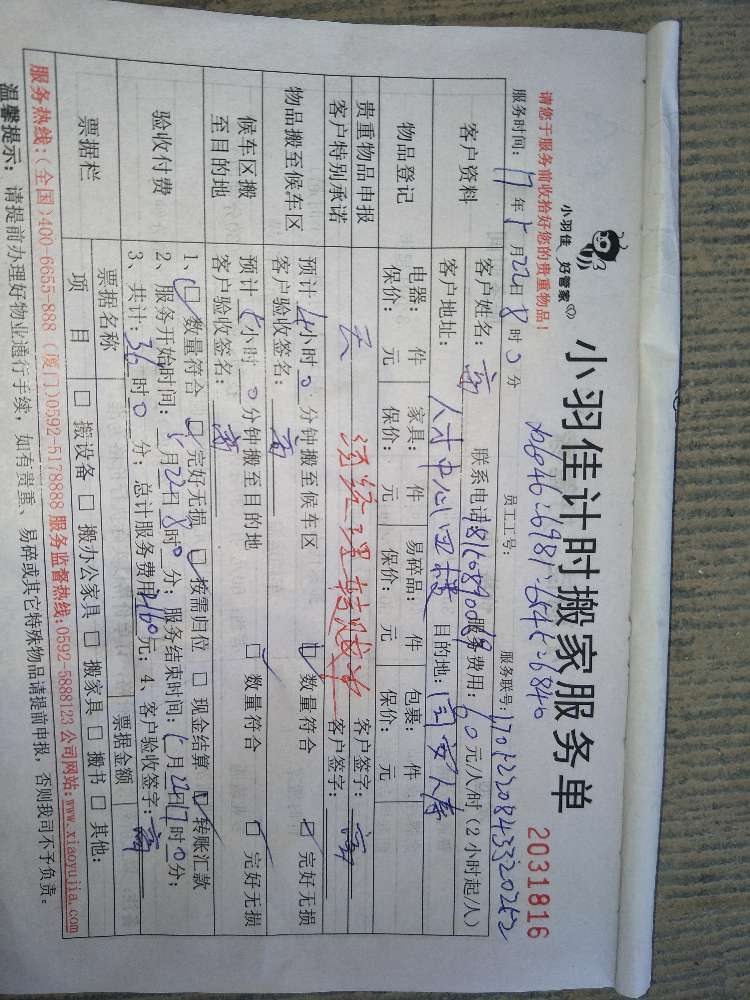 小羽佳 好管家
小羽佳计时搬家服务单
2031816
请您于服务前收拾好您的贵重物品！
员工工号：
服务联号：
服务时间：17年5月22日8时0分
客户资料
客户姓名：
联系电话
服务费用：60元/人/时（2小时起/人）
客户地址：人才中心四楼
目的地：国安人寿
物品登记
电器： 件 家具： 件 易碎品： 件 包裹： 件
保价： 元 保价： 元 保价： 元 保价： 元
贵重物品申报
客户特别承诺
无
客户签字：
客户签字：
物品搬至候车区
预计：4小时0分钟搬至候车区 数量符合 完好无损
客户验收签名：
候车区搬至目的地
预计：5小时0分钟搬至目的地 数量符合 完好无损
客户验收签名：
验收付费
1、数量符合 完好无损 按需归位 现金结算 转账汇款
2、服务开始时间：5月22日8时0分；服务结束时间：5月22日17时0分；
3、共计：36时0分；总计服务费用2160元；4、客户验收签字：
票据栏
票据名称 票据金额
项目 搬设备 搬办公家具 搬家具 搬书 其他：
服务热线：(全国)400-6655-888 (厦门)0592-5178888 服务监督热线：0592-5888123 公司网站：www.xiaoyujia.com
温馨提示：请提前办理好物业通行手续，如有贵重、易碎或其它特殊物品请提前申报，否则我司不予负责。